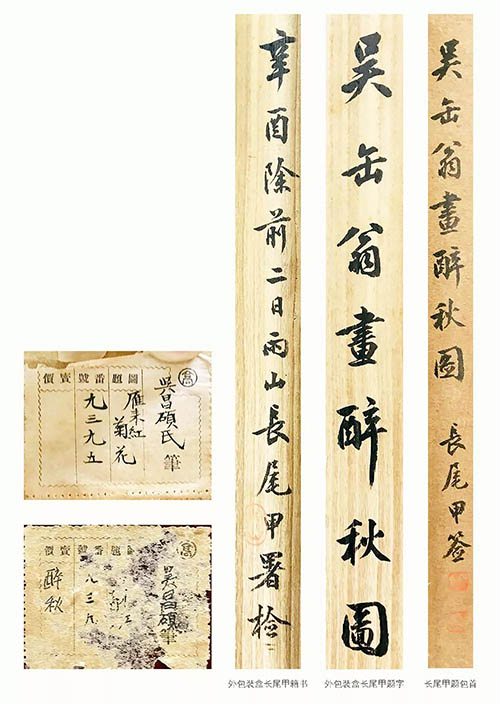 吴缶翁畫醉秋圖
長尾甲签
吴缶翁畫醉秋圖
辛酉除前二日雨山長尾甲署檢
吳昌碩氏筆
圖題
雁来紅
菊花
番號
九三九五
賣價
吳昌碩筆
賣價
醉秋
外包装盒长尾甲籍书
外包装盒长尾甲题字
长尾甲题包首